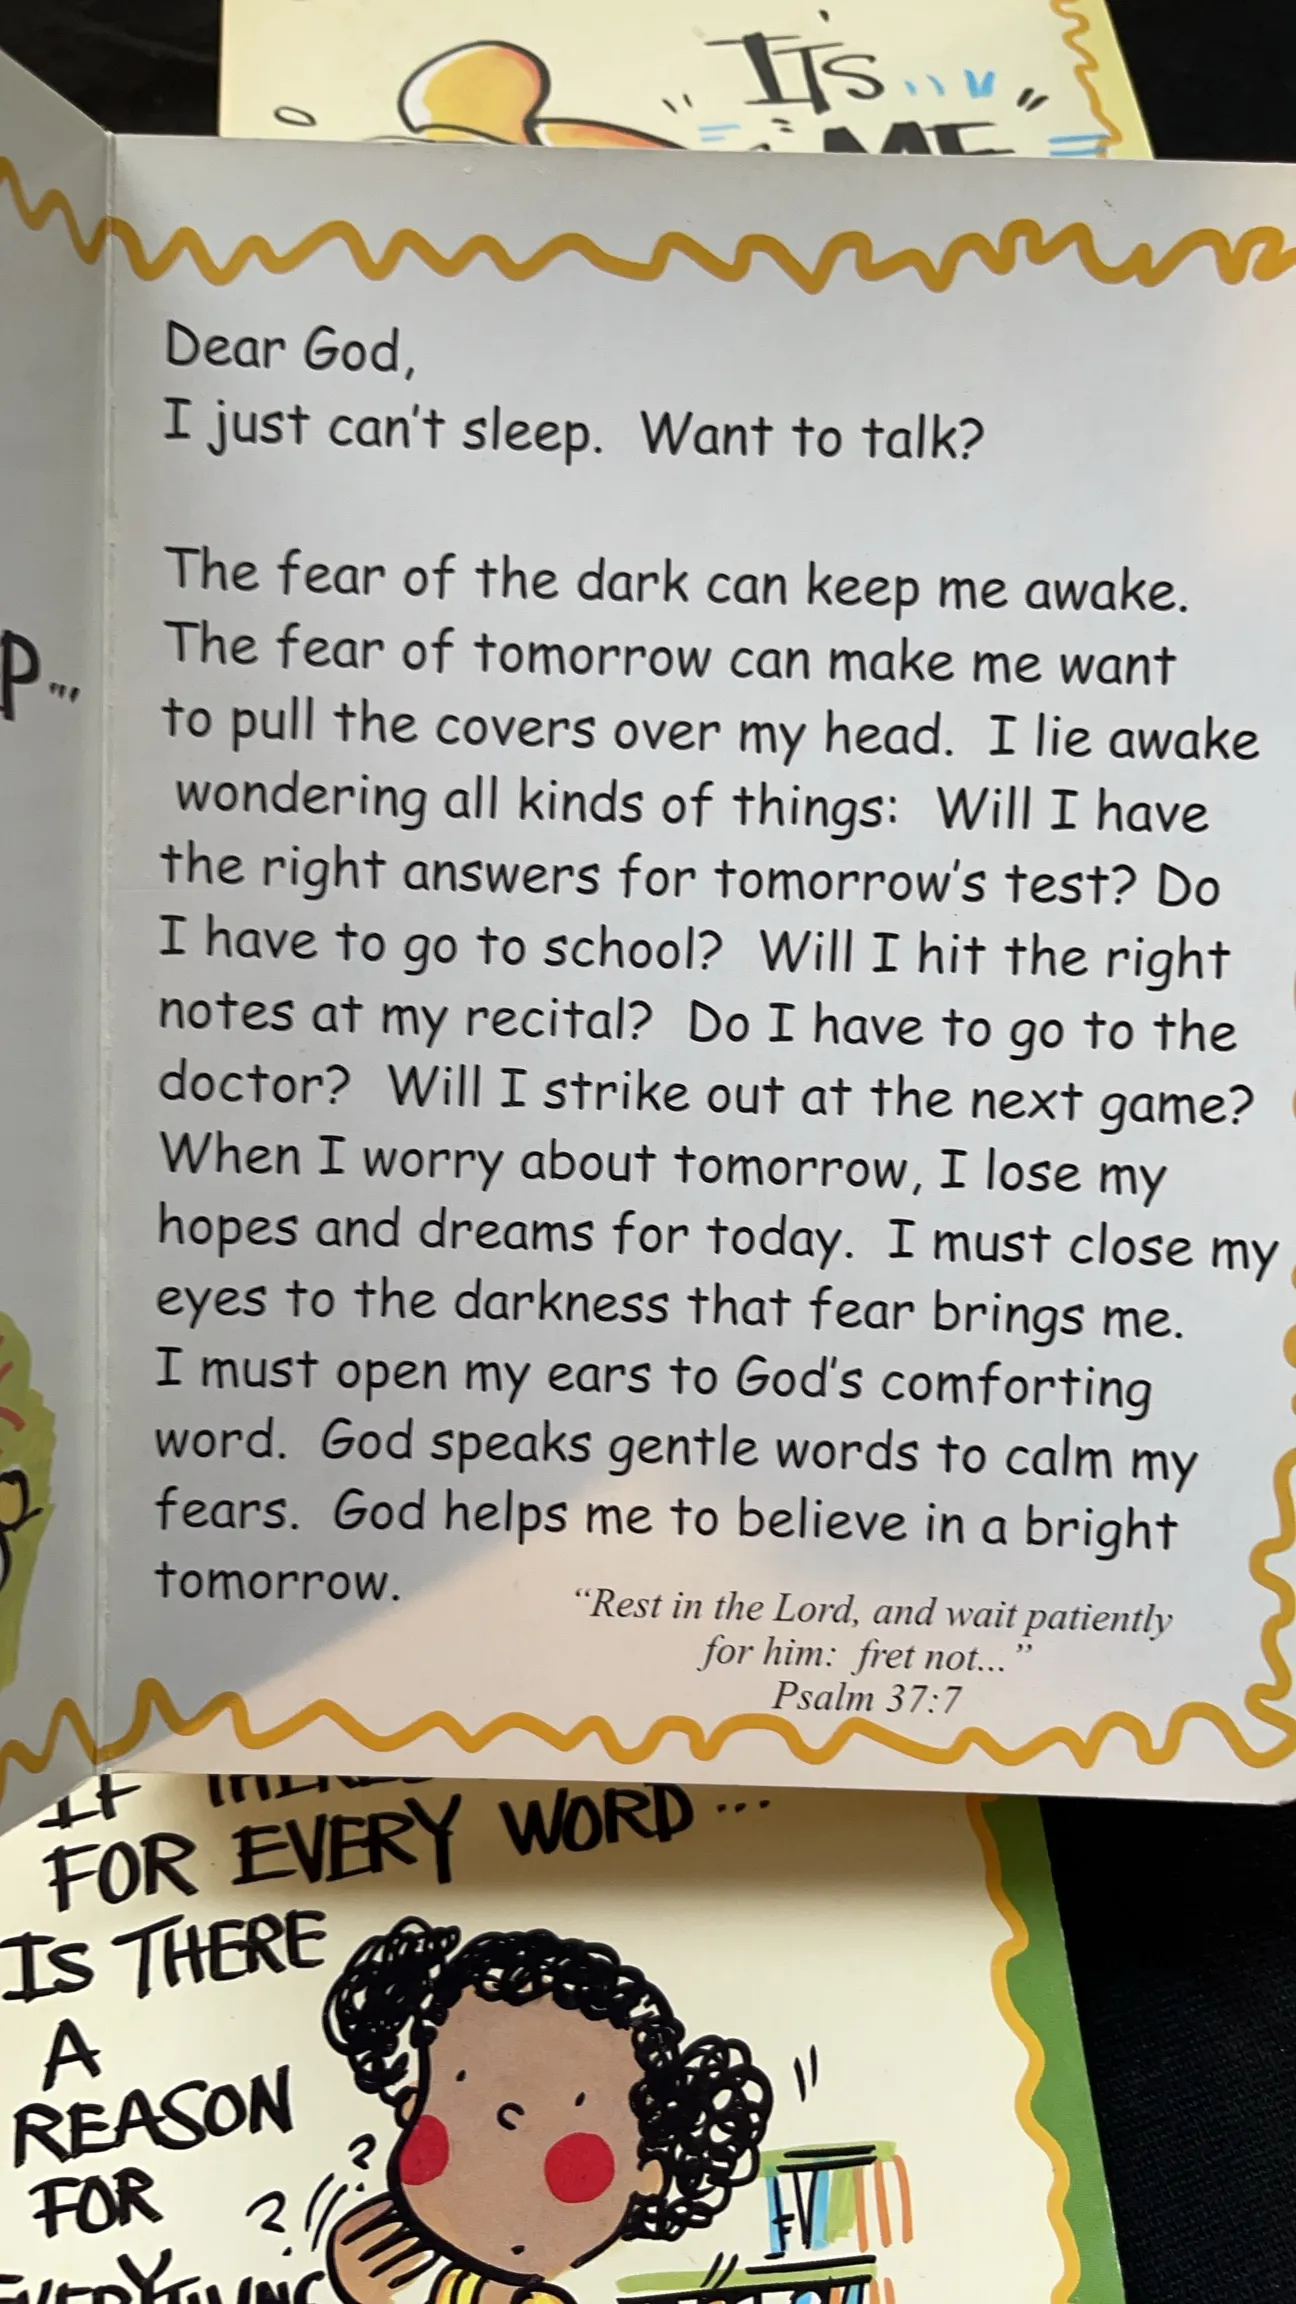 ITS
ME
P...
Dear God,
I just can't sleep.  Want to talk?
The fear of the dark can keep me awake.
The fear of tomorrow can make me want
to pull the covers over my head.  I lie awake
wondering all kinds of things:  Will I have
the right answers for tomorrow's test? Do
I have to go to school?  Will I hit the right
notes at my recital?  Do I have to go to the
doctor?  Will I strike out at the next game?
When I worry about tomorrow, I lose my
hopes and dreams for today.  I must close my
eyes to the darkness that fear brings me.
I must open my ears to God's comforting
word.  God speaks gentle words to calm my
fears.  God helps me to believe in a bright
tomorrow.
“Rest in the Lord, and wait patiently
for him:  fret not...”
Psalm 37:7
IF
FOR EVERY WORD...
IS THERE
A
REASON
FOR
EVERYTHING
? ?